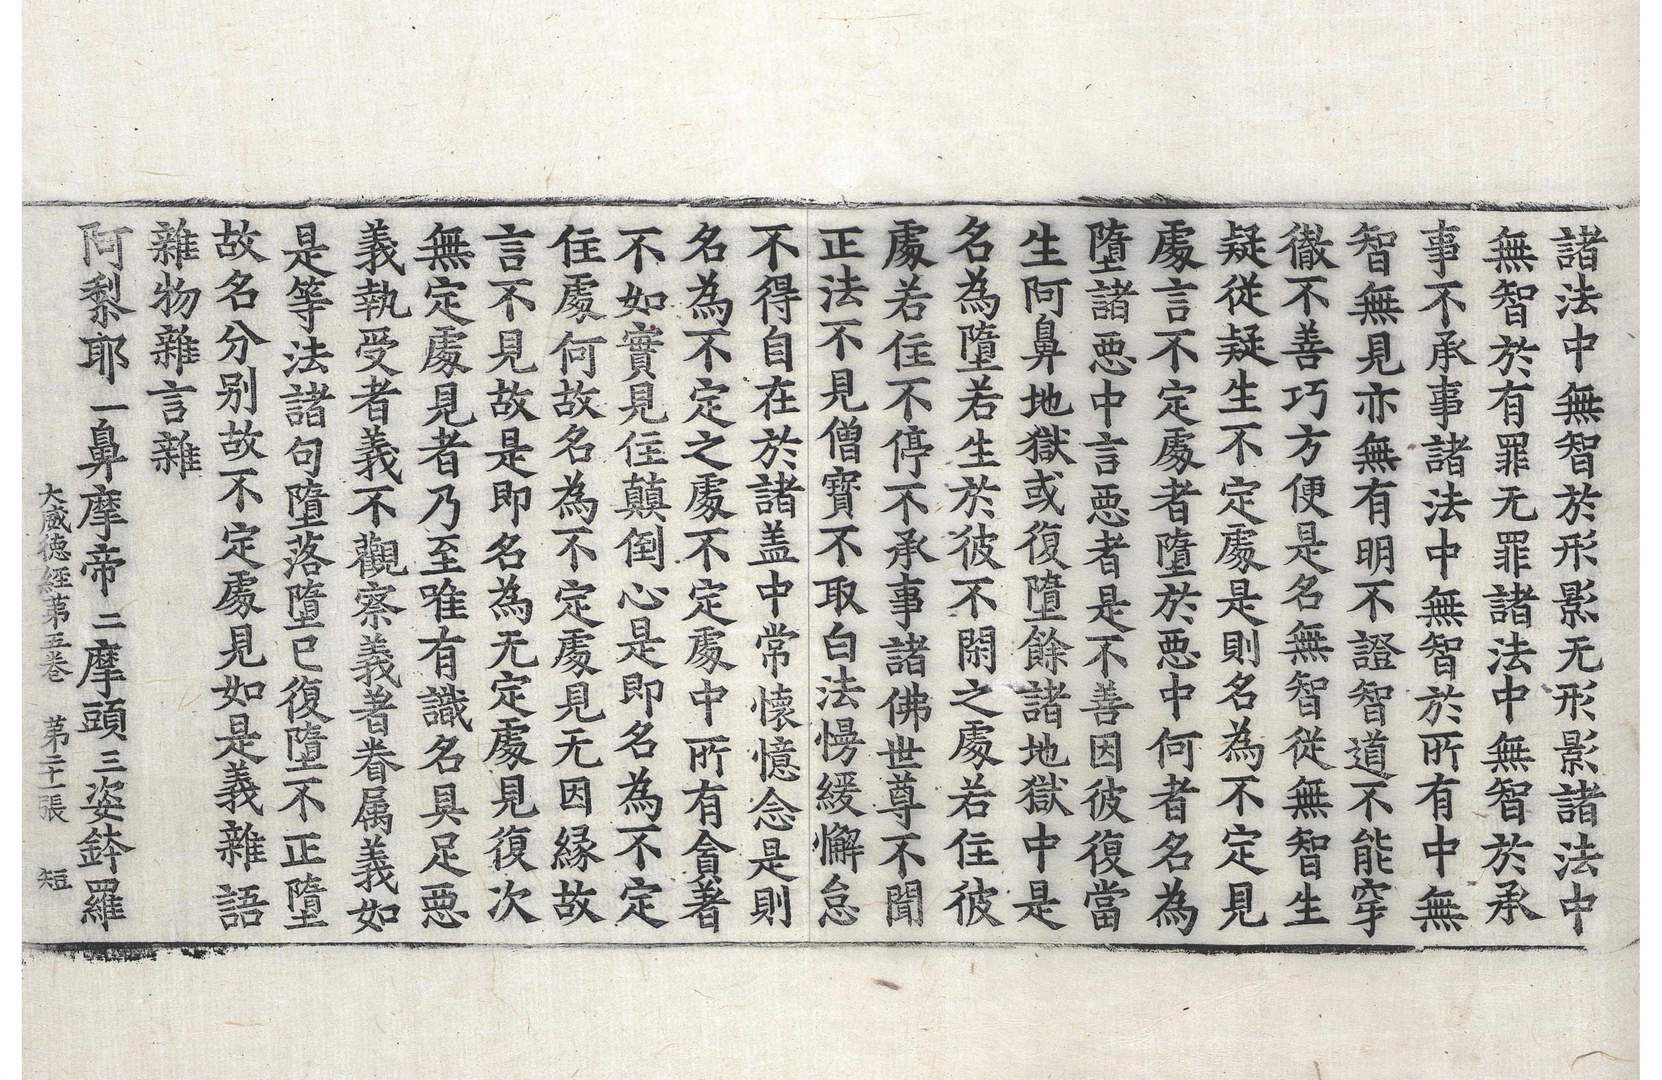 諸法中無智於形影无形影諸法中
無智於有罪无罪諸法中無智於承
事不承事諸法中無智於所有中無
智無見亦無有明不證智道不能穿
徹不善巧方便是名無智從無智生
疑從疑生不定處是則名為不定見
處言不定處者墮於悪中何者名為
墮諸悪中言悪者是不善因彼復當
生阿鼻地獄或復墮餘諸地獄中是
名為墮若生於彼不閑之處若住彼
處若住不停不承事諸佛世尊不聞
正法不見僧寶不取白法慢緩懈怠
不得自在於諸盖中常懷憶念是則
名為不定之處不定處中所有貪著
不如實見住顛倒心是即名為不定
住處何故名為不定處見无因縁故
言不見故是即名為无定處見復次
無定處見者乃至唯有識名具足悪
義執受者義不觀察義著眷属義如
是等法諸句墮落墮已復墮不正墮
故名分别故不定處見如是義雜語
雜物雜言雜
阿梨耶一鼻摩帝二摩頭三姿鉢羅
大威徳經苐五巻 苐二十一張 短